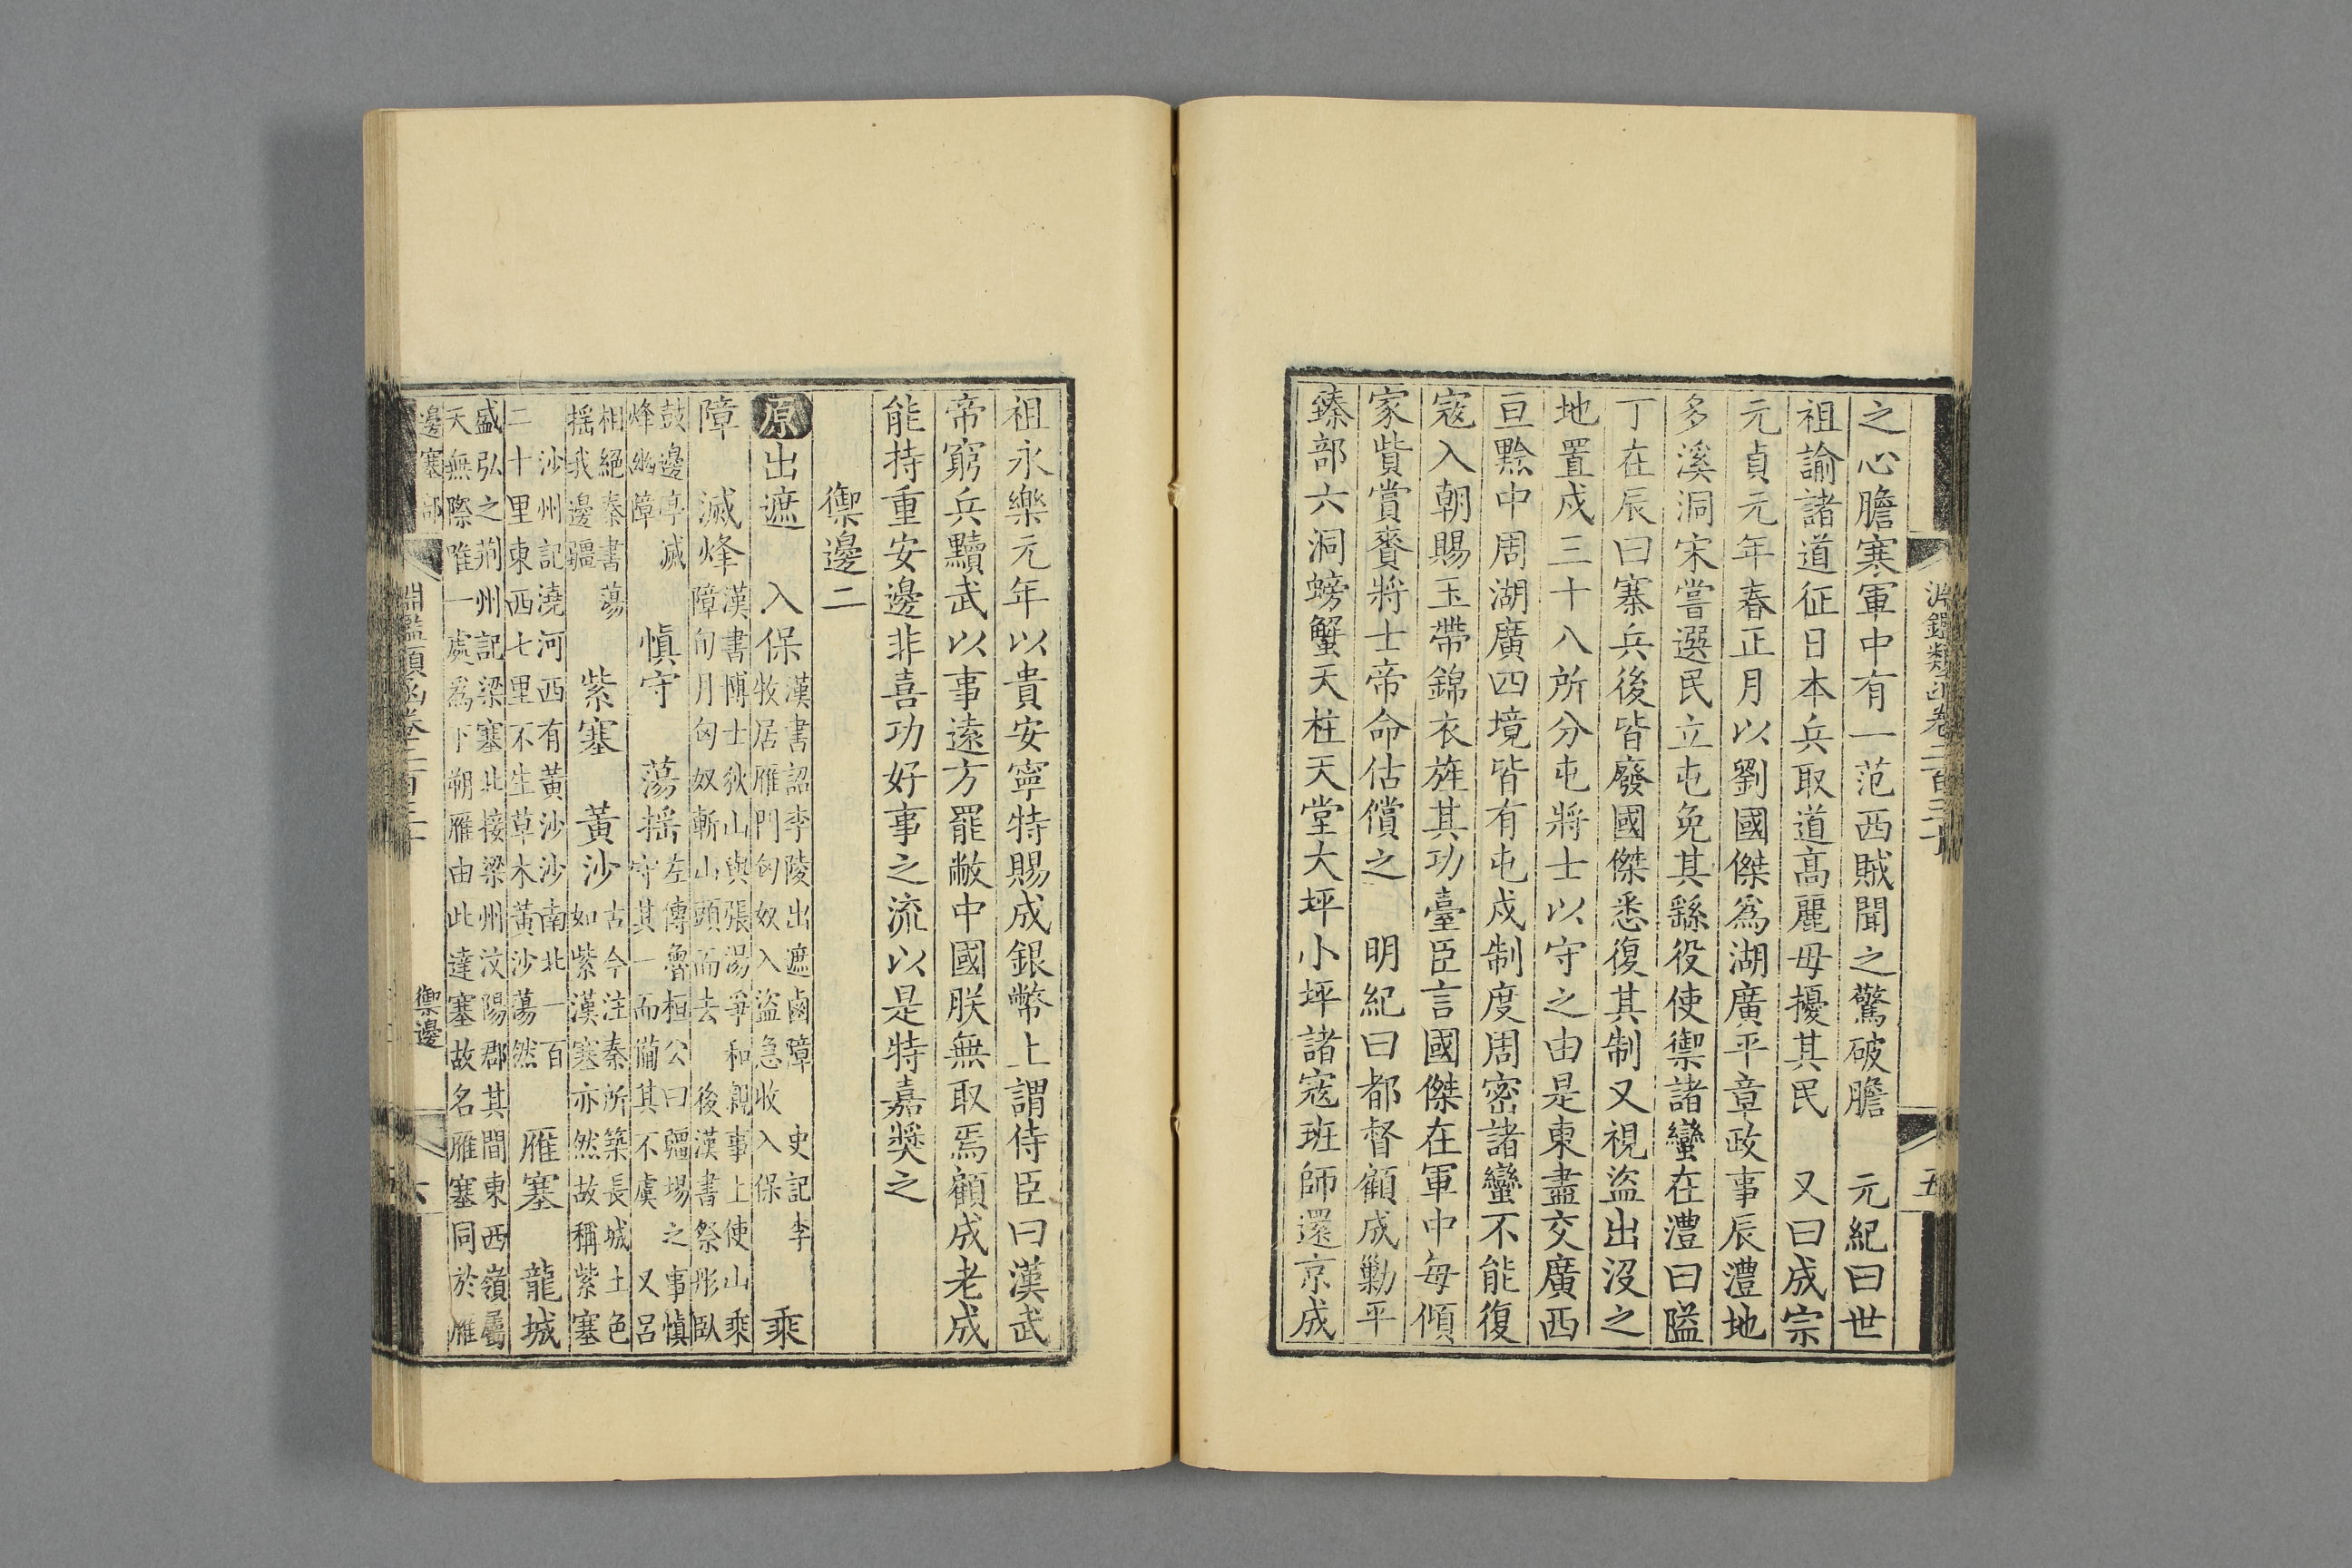 淵鑑類函卷二百三十
五
之心膽寒軍中有一范西賊聞之驚破膽　元紀曰世
祖諭諸道征日本兵取道高麗毋擾其民　又曰成宗
元貞元年春正月以劉國傑爲湖廣平章政事辰澧地
多溪洞宋嘗選民立屯免其繇役使禦諸蠻在澧曰隘
丁在辰曰寨兵後皆廢國傑悉復其制又視盜出沒之
地置戍三十八所分屯將士以守之由是東盡交廣西
亘黔中周湖廣四境皆有屯戍制度周密諸蠻不能復
寇入朝賜玉帶錦衣旌其功臺臣言國傑在軍中每傾
家貲賞賚將士帝命估償之　明紀曰都督顧成勦平
臻部六洞螃蟹天柱天堂大坪小坪諸寇班師還京成
祖永樂元年以貴安寧特賜成銀幣上謂侍臣曰漢武
帝窮兵黷武以事遠方罷敝中國朕無取焉顧成老成
能持重安邊非喜功好事之流以是特嘉奬之
禦邊二
原出遮　入保漢書詔李陵出遮鹵障　史記李牧居雁門匈奴入盜急收入保　乘
障　滅烽漢書博士狄山與張湯爭和親事上使山乘障旬月匈奴斬山頭而去　後漢書祭肜臥
鼓邊亭滅烽幽障　愼守　蕩搖左傳魯桓公曰疆埸之事愼守其一而備其不虞　又呂
相絕秦書蕩搖我邊疆　紫塞　黃沙古今注秦所築長城土色如紫漢塞亦然故稱紫塞
沙州記澆河西有黃沙沙南北一百二十里東西七里不生草木黃沙蕩然　雁塞　龍城
盛弘之荊州記梁塞北接梁州汶陽郡其間東西嶺屬天無際唯一處爲下朔雁由此達塞故名雁塞同於雁
邊塞部
淵鑑類函卷二百三十
禦邊
六